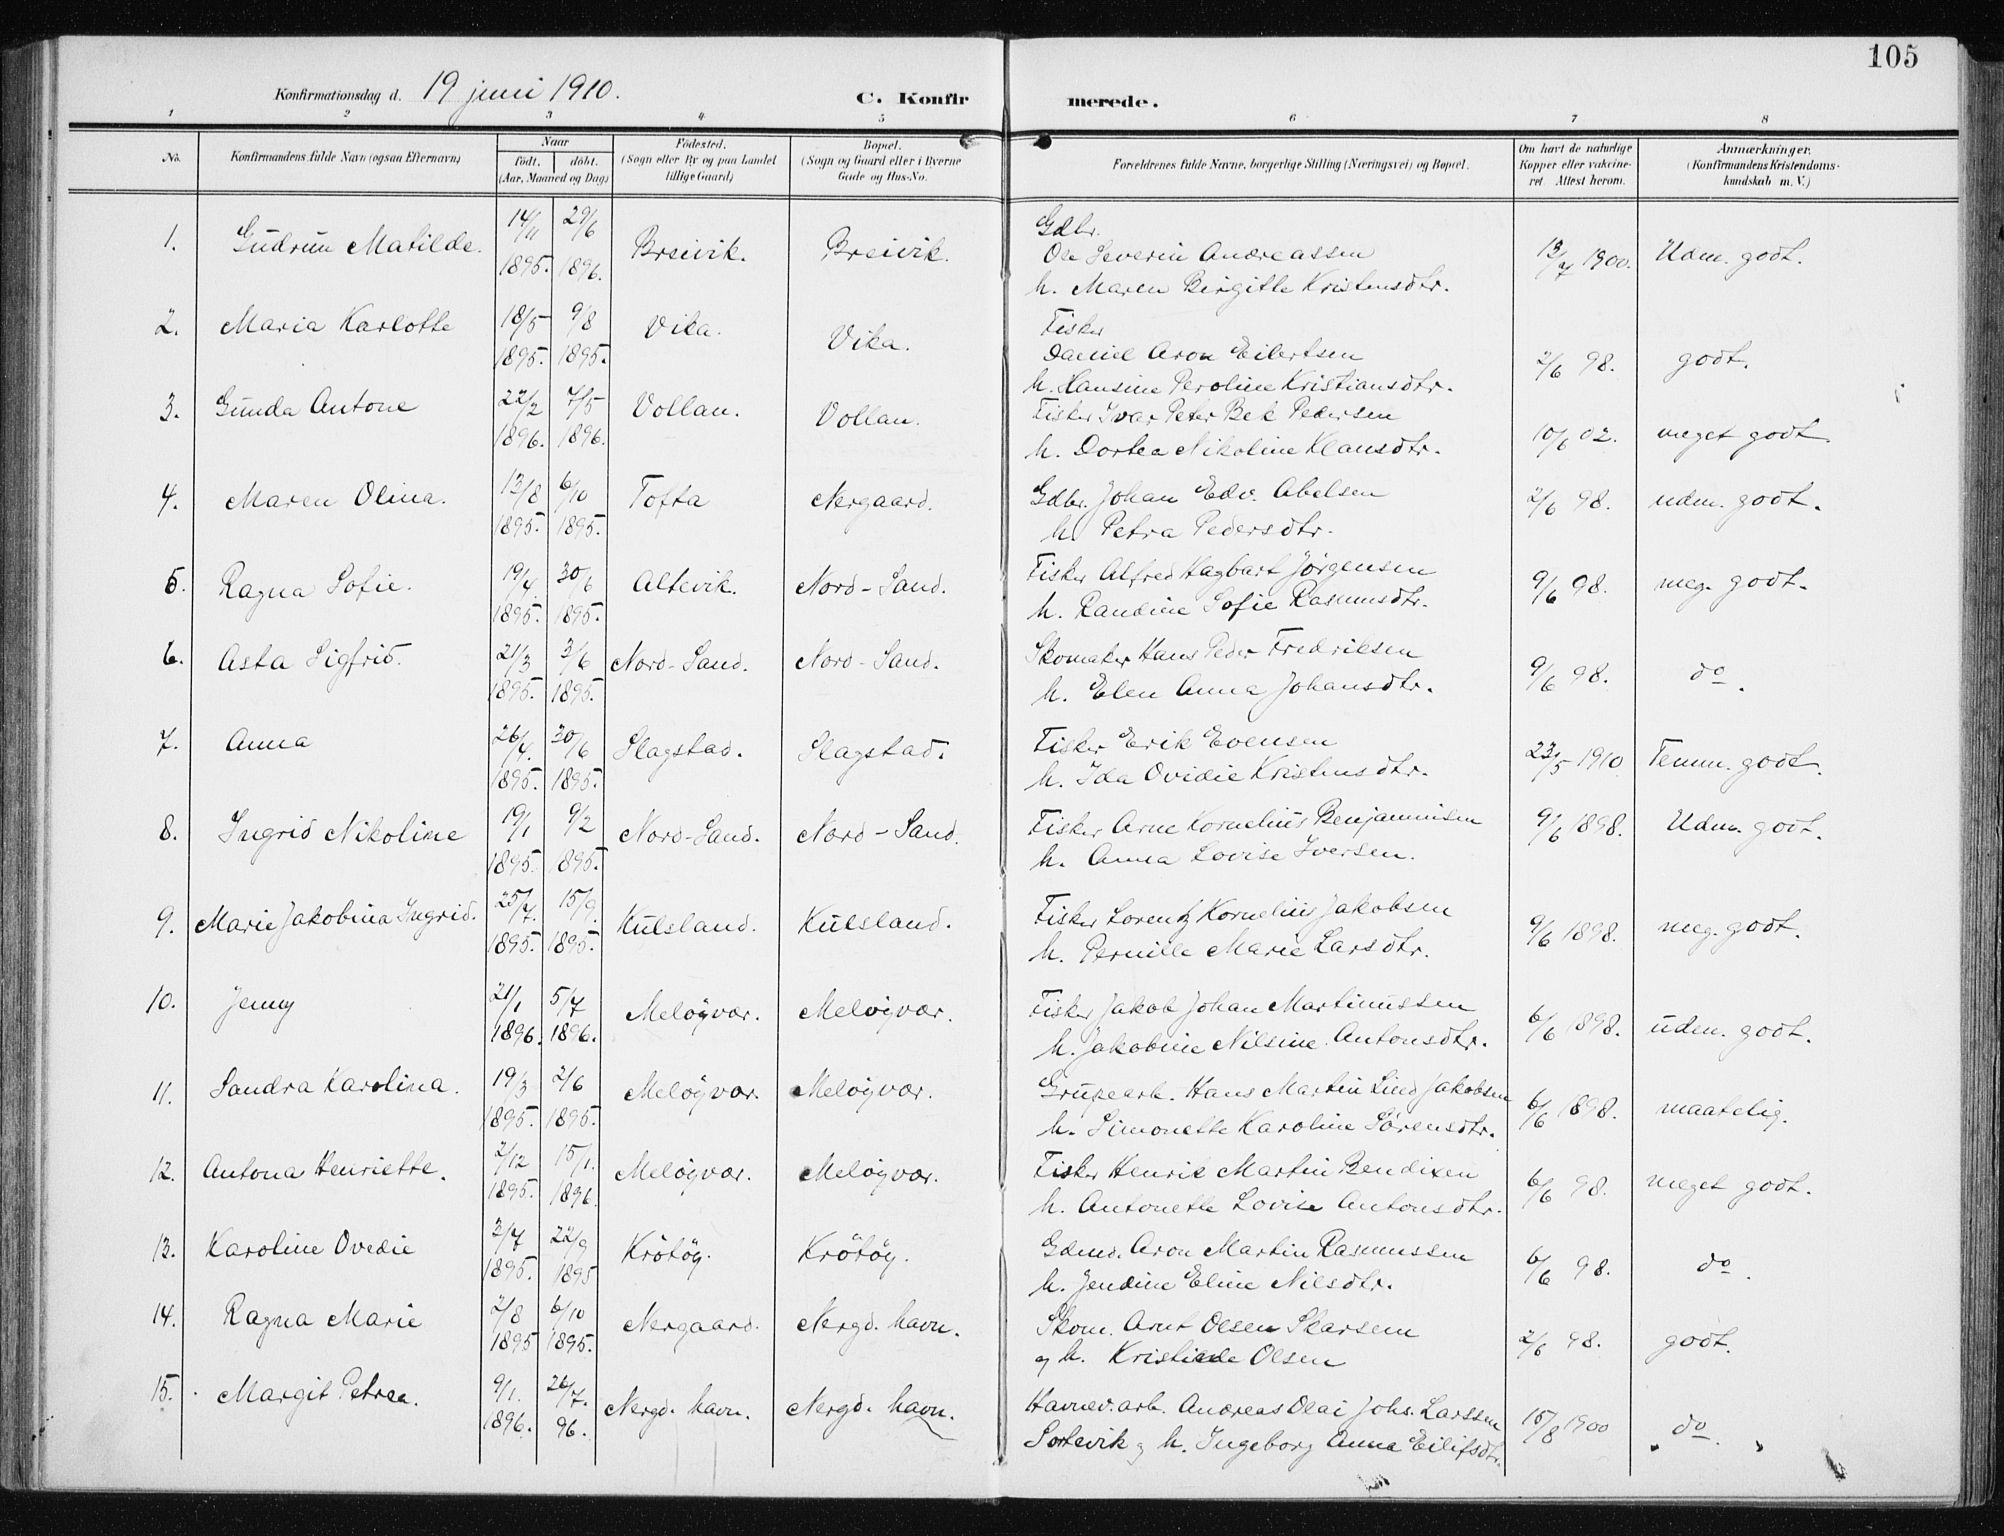 105
Konfirmationsdag d. 19 juni 1910.
C. Konfirmerede.
1 2 3 4 5 6 7 8
No. Konfirmandens fulde Navn (ogsaa Efternavn)
Naar
födt. döbt.
(Aar, Maaned og Dag)
Födested.
(Sogn eller By og paa Landet
tillige Gaard)
Bopæl.
(Sogn og Gaard eller i Byerne
Gade og Hus-No.
Forældrenes fulde Navne, borgerlige Stilling (Næringsvei) og Bopæl.
Om havt de naturlige
Kopper eller vakcine-
ret. Attest herom.
Anmærkninger.
(Konfirmandens Kristendoms-
kundskab m. V.)
1. Gudrun Matilde. 14/11 1895. 29/6 1896. Breivik. Breivik. Gdbr.
Ole Severin Andreassen
h. Maren Birgitte Kristensdtr. 13/7 1900. Udm. godt.
2. Maria Karlotte 18/5 1895. 9/8 1895. Vika. Vika. Fisker
Daniel Aron Eilertsen
h. Hansine Peroline Kristiansdtr. 2/6 98. godt.
3. Gunda Antone 22/2 1896. 7/5 1896. Vollan. Vollan. Fisker Ivar Peter Bek Pedersen
h. Dortea Nikoline Klausdtr. 10/6 02. meget godt.
4. Maren Olina. 13/8 1895. 6/10 1895. Tofta Nergaard. Gdbr. Johan Edv. Abelsen
h. Petra Pedersdtr. 2/6 98. udm. godt.
5. Ragna Sofie. 19/4 1895. 30/6 1895. Altevik. Nord-Sand. Fisker Alfred Hagbart Jørgensen
h. Randine Sofie Rasmusdtr. 9/6 98. meg. godt.
6. Asta Sigfrid. 21/3 1895. 3/6 1895. Nord-Sand. Nord-Sand. Skomaker Hans Peder Fredriksen
h. Elen Anna Johansdtr. 9/6 98. do.
7. Anna 26/4 1895. 30/6 1895. Slagstad. Slagstad. Fisker Erik Evensen
h. Ida Ovidie Kristensdtr. 23/5 1910 Temm. godt.
8. Ingrid Nikoline 19/1 1895. 9/2 895. Nord-Sand. Nord-Sand. Fisker Arne Kornelius Benjaminsen
h. Anna Lovise Iversen. 9/6 1898. Udm. godt.
9. Marie Jakobina Ingrid. 25/7. 1895. 15/9. 1895. Kulsland. Kulsland. Fisker Lorentz Kornelius Jakobsen
h. Pernille Marie Larsdtr. 9/6 1898. meg. godt.
10. Jenny 21/1 1896. 5/7 1896. Meløyvær. Meløyvær. Fisker Jakob Johan Martinussen
h. Jakobine Nilsine Antonsdtr. 6/6 1898. udm. godt.
11. Sandra Karolina. 19/3 1895. 2/6 1895. Meløyvær. Meløyvær. Grubearb. Hans Martin Lind Jakobsen
h. Simonette Karoline Sørensdtr. 6/6 1898. maatelig.
12. Antona Henriette. 2/12 1895. 15/1. 1896. Meløyvær. Meløyvær. Fisker Henrik Martin Bendixen
h. Antonette Lovise Antonsdtr. 6/6 98. meget godt.
13. Karoline Ovedie 3/7 1895. 22/9 1895 Krøtøy. Krøtøy. Gdmd. Aron Martin Rasmussen
h. Jendine Eline Nilsdtr. 6/6 98. do.
14. Ragna Marie 2/8 1895 6/10 1895. Nergaard. Nergd. havn. Skom. Arnt Olsen Skarsem
og h. Olsen 2/6 98. godt.
15. Margit Petrea. 9/1. 1896. 26/7. 96. Nergd. havn. Nergd. havn. Havnev. arb. Andreas Olai Johs. Larssen
Sortevik og h. Ingeborg Anna Eilifsdtr. 15/8 1900 do.